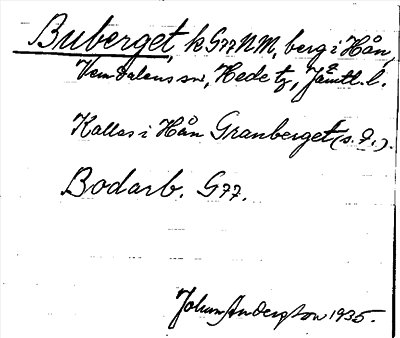 Buberget, k G77NM, berg i Hån,
Vemdalens sn, Hede tg, Jämtl. l.
Kallas i Hån Granberget (s. d.).
Bodarb. G77.
Johan Anderzson 1935.